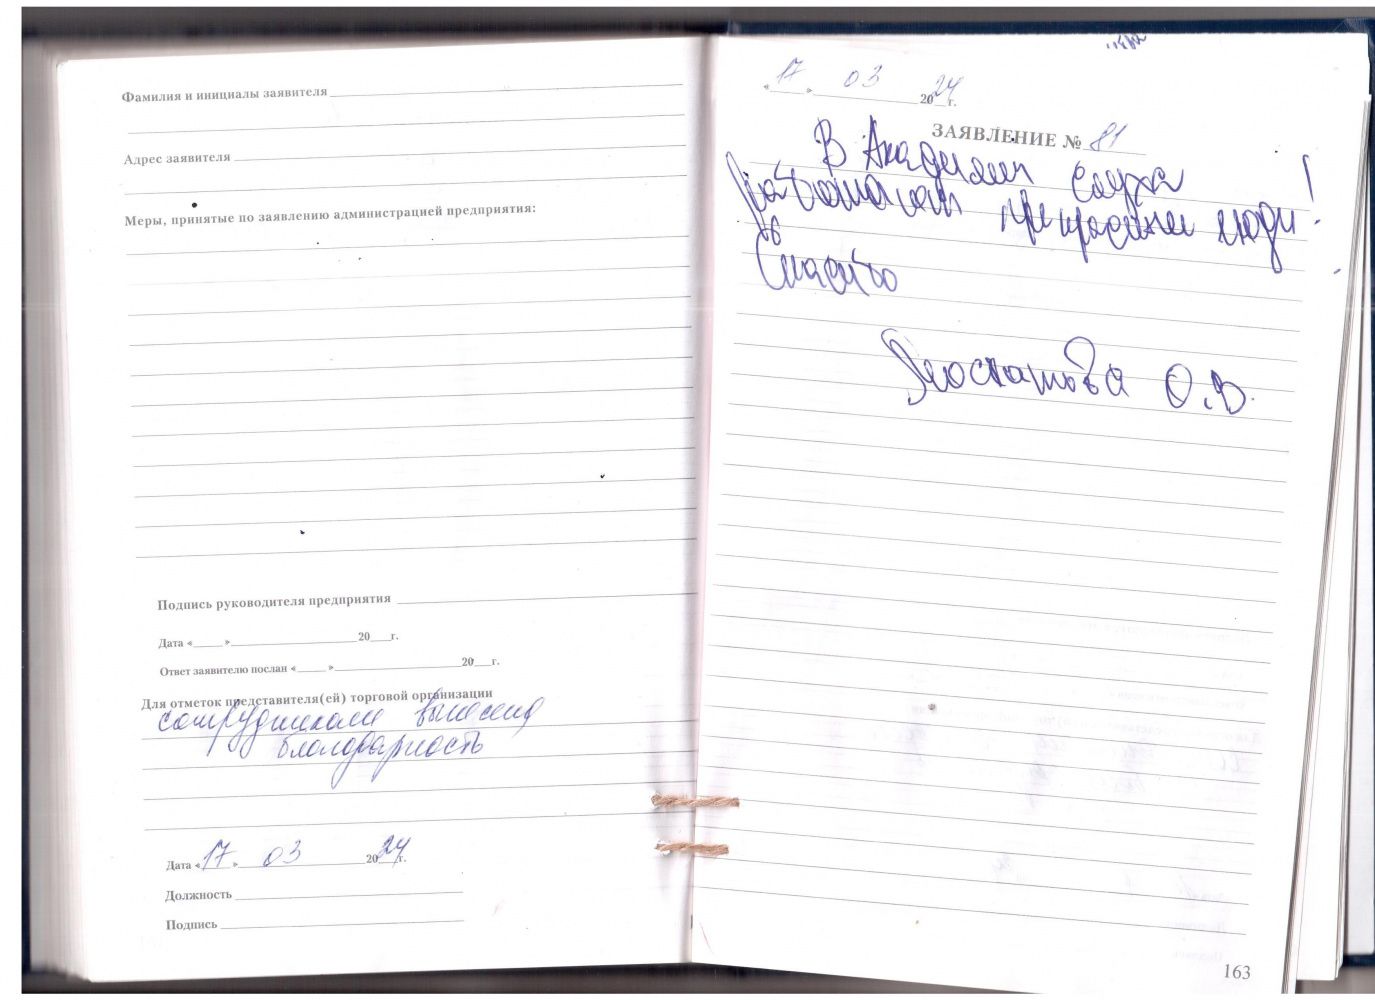 Фамилия и инициалы заявителя
Адрес заявителя
Меры, принятые по заявлению администрацией предприятия:
Подпись руководителя предприятия
Дата «____» ____ 20__г.
Ответ заявителю послан «____» ____ 20__г.
Для отметок представителя(ей) торговой организации
сотрудникам вынесена
благодарность
Дата «17» 03 2024г.
Должность
Подпись
«17» 03 2024г.
ЗАЯВЛЕНИЕ № 81
В Академии слуха
работают прекрасные люди!
Спасибо
О.В.
163